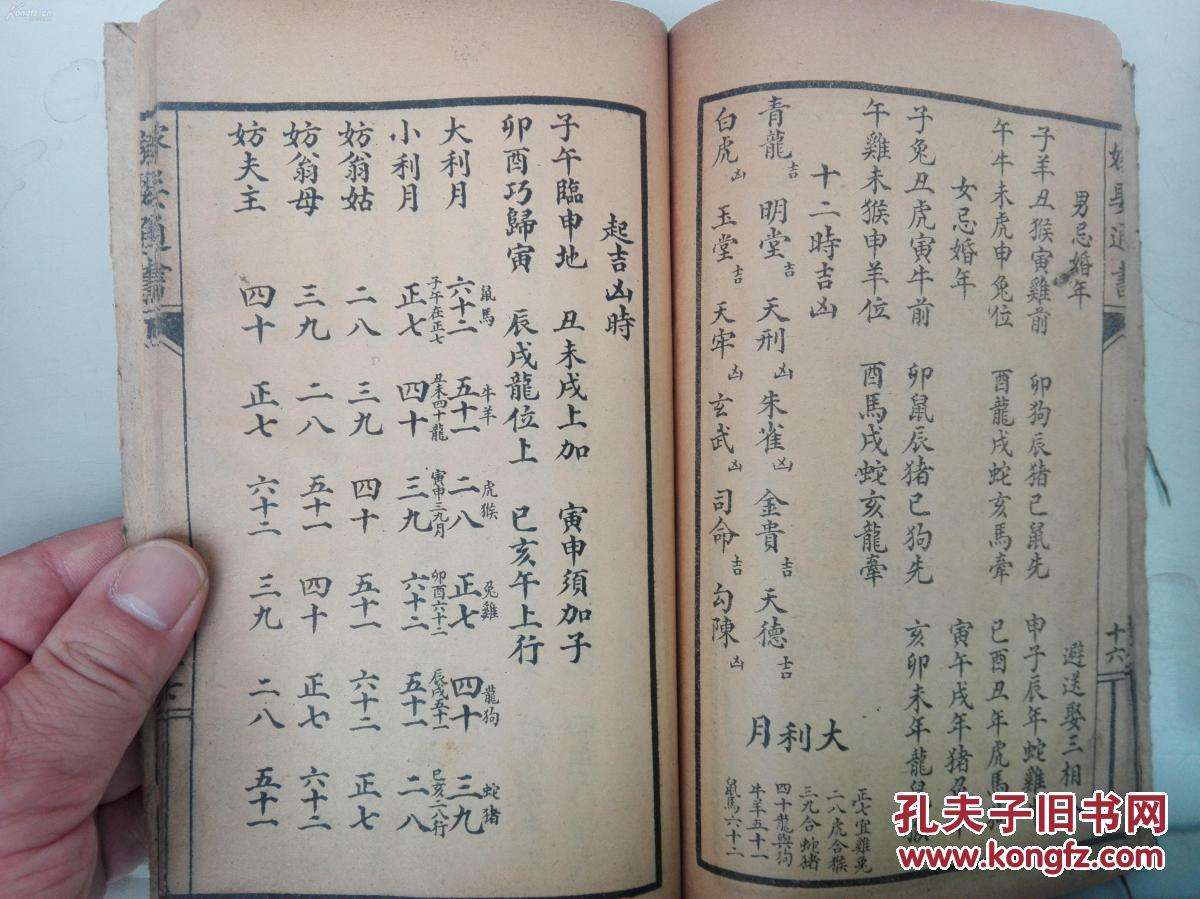 嫁娶通書
男忌婚年
子羊丑猴寅雞前 卯狗辰猪巳鼠先
午牛未虎申兔位 酉龍戌蛇亥馬牽
女忌婚年
子兔丑虎寅牛前 卯鼠辰猪巳狗先
午雞未猴申羊位 酉馬戌蛇亥龍牽
避送娶三相
申子辰年蛇雞
巳酉丑年虎馬
寅午戌年猪
亥卯未年龍鼠
十六
十二時吉凶
青龍吉 明堂吉 天刑凶 朱雀凶 金貴吉 天德吉
白虎凶 玉堂吉 天牢凶 玄武凶 司命吉 勾陳凶
大利月
正七宜雞兔
二八虎合猴
三九合蛇猪
四十龍與狗
牛羊五十一
鼠馬六十二
起吉凶時
子午臨申地 丑未戌上加 寅申須加子
卯酉巧歸寅 辰戌龍位上 巳亥午上行
鼠馬 牛羊 虎猴 兔雞 龍狗 蛇猪
大利月 六十二 五十一 二八 正七 四十 三九
子午在正七 丑未四十龍 寅申三九月 卯酉六十二 辰戌五十一 巳亥二八行
小利月 正七 四十 三九 六十二 五十一 二八
妨翁姑 二八 三九 四十 五十一 六十二 正七
妨翁母 三九 二八 五十一 四十 正七 六十二
妨夫主 四十 正七 六十二 三九 二八 五十一
嫁娶通書
孔夫子旧书网
www.kongfz.com
Kongfz.cn